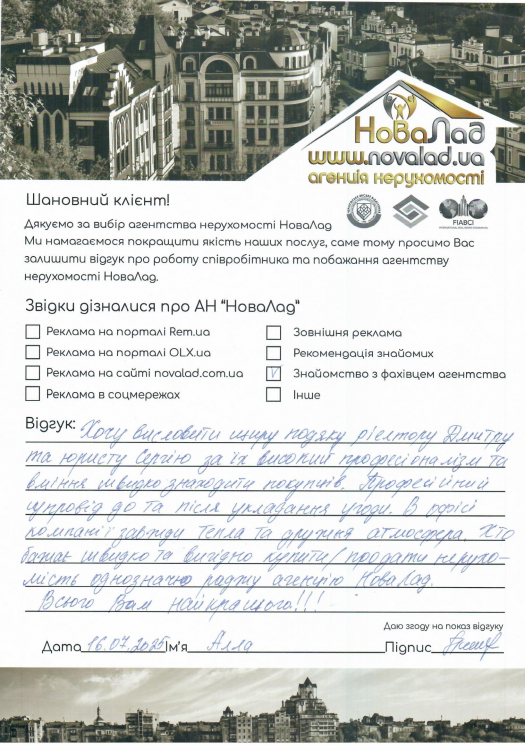 НоваЛад
www.novalad.ua
агенція нерухомості
FIABCI
Шановний клієнт!
Дякуємо за вибір агентства нерухомості НоваЛад
Ми намагаємося покращити якість наших послуг, саме тому просимо Вас
залишити відгук про роботу співробітника та побажання агентству
нерухомості НоваЛад.
Звідки дізналися про АН “НоваЛад”
Реклама на порталі Rem.ua
Реклама на порталі OLX.ua
Реклама на сайті novalad.com.ua
Реклама в соцмережах
Зовнішня реклама
Рекомендація знайомих
V Знайомство з фахівцем агентства
Інше
Відгук: Хочу висловити щиру подяку рієлтору Дмитру
та юристу Сергію за їх високий професіоналізм та
вміння швидко знаходити покупців. Професійний
супровід до та після укладання угоди. В офісі
компанії завжди тепла та дружня атмосфера. Хто
бажає швидко та вигідно купити/продати нерухо-
мість однозначно раджу агенцію НоваЛад.
Всього Вам найкращого!!!
Даю згоду на показ відгуку
Дата 16.07.2025 Ім'я Алла Підпис